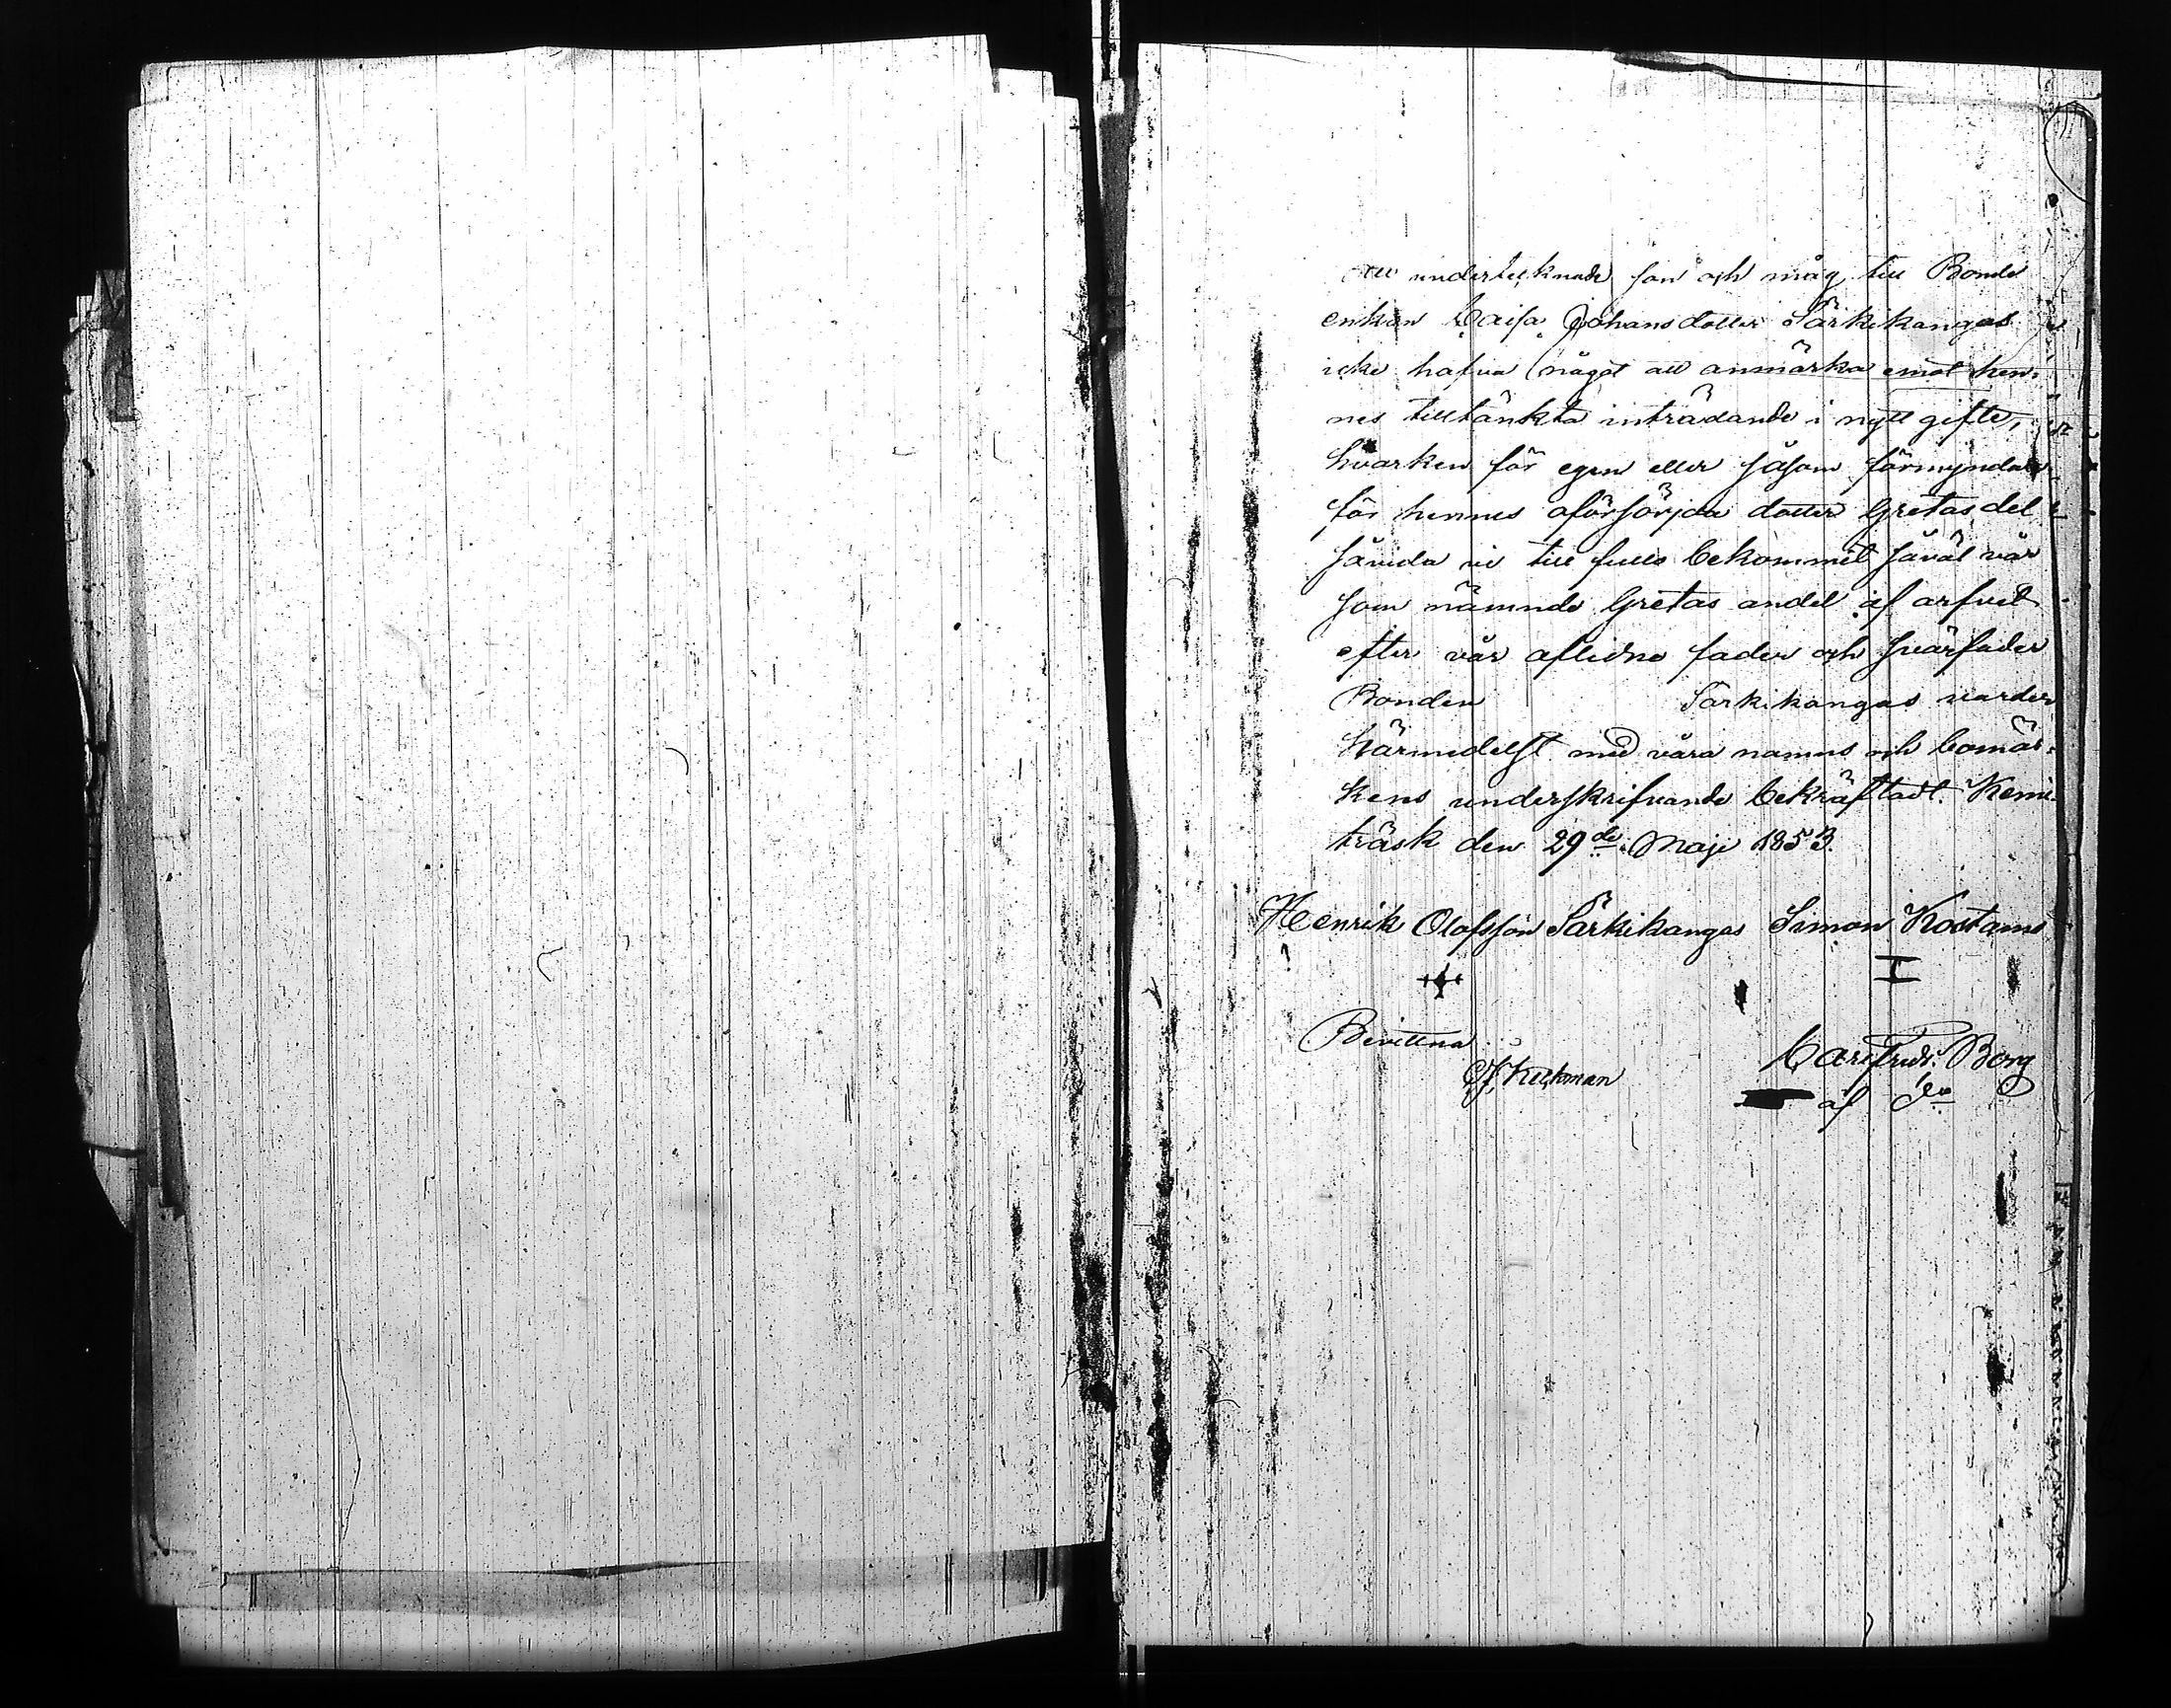 Att undertecknade son och måg till Bonde
enkan Caisa Johansdotter Särkikangas
icke hafva något att anmärka emot hen-
nes tilltänkta inträdande i nytt gifte,
hvarken för egen eller såsom förmyndare
för hennes oförsörjda dotter Gretas del
såvida vi till fullo bekommit såväl vår
som nämnde Gretas andel af arfvet
efter vår aflidne fader och svärfader
Bonden Särkikangas varder
härmedelst med våra namns och bomär-
kens underskrifvande bekräftadt. Kemi-
träsk den 29de Maji 1853.
Henrik Olofsson Särkikangas Simon Kostamo
Bevittna
Carl Fredr. Borg
af do